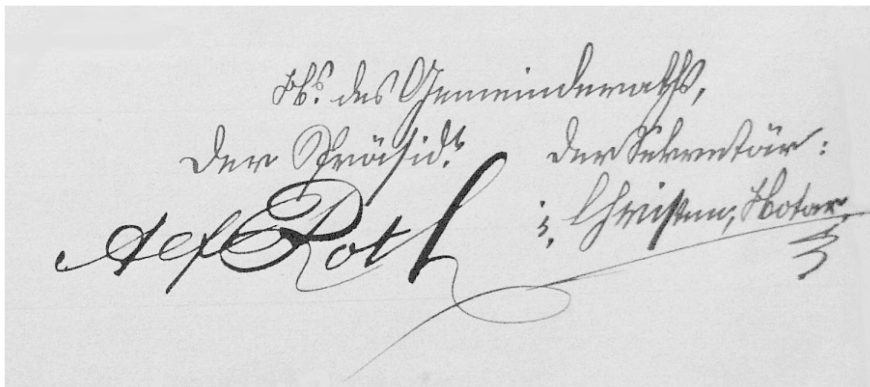 Ns. des Gemeinderaths,
Der Präsidt. Der Sekretär:
Alf Roth Christen, Notar.